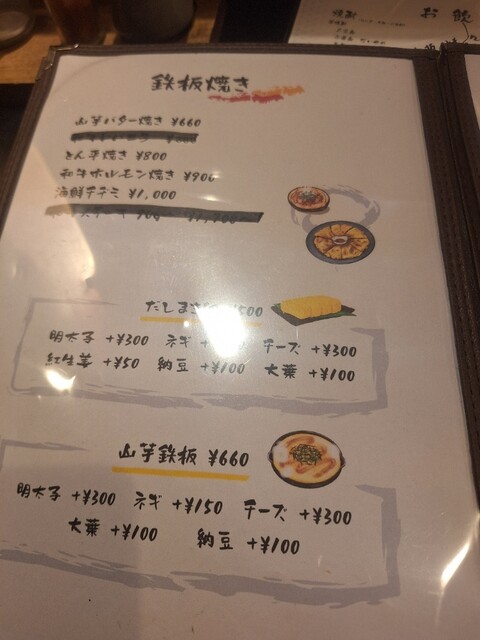 鉄板焼き
山芋バター焼き ¥660
とん平焼き ¥800
和牛ホルモン焼き ¥900
海鮮チヂミ ¥1,000
だしまき
明太子 +¥300 ネギ + チーズ +¥300
紅生姜 +¥50 納豆 +¥100 大葉 +¥100
山芋鉄板 ¥660
明太子 +¥300 ネギ +¥150 チーズ +¥300
大葉 +¥100 納豆 +¥100
お飲